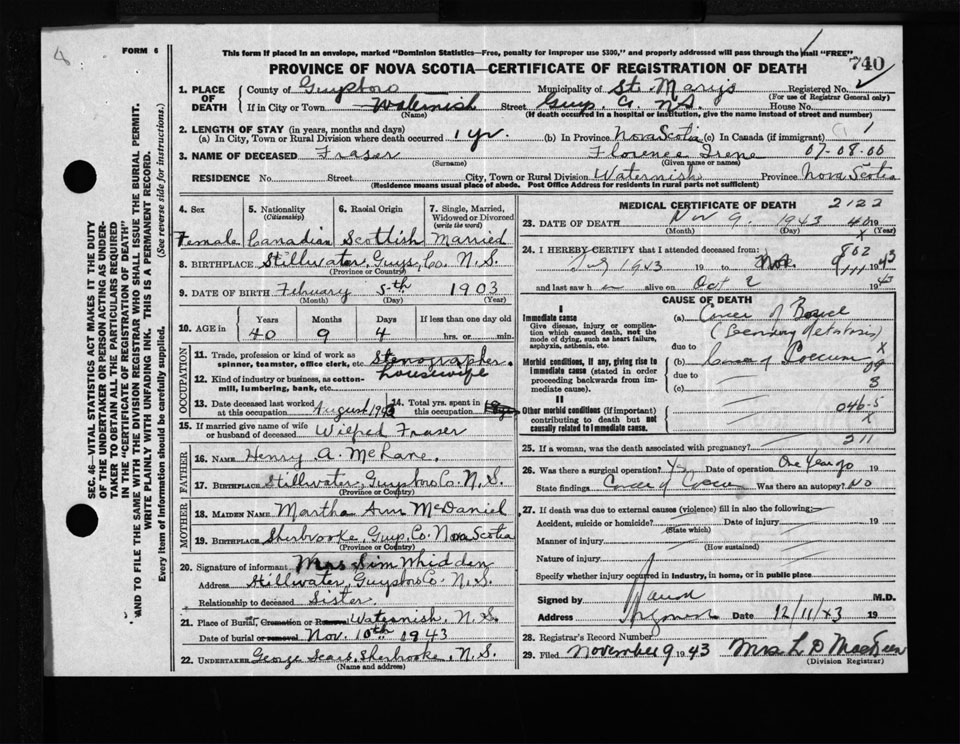 FORM 6
This form if placed in an envelope, marked "Dominion Statistics—Free, penalty for improper use $300," and properly addressed will pass through the mail "FREE"
PROVINCE OF NOVA SCOTIA—CERTIFICATE OF REGISTRATION OF DEATH
740
SEC. 46—VITAL STATISTICS ACT MAKES IT THE DUTY
OF THE UNDERTAKER OR PERSON ACTING AS UNDER-
TAKER TO OBTAIN ALL THE PARTICULARS REQUIRED
IN THE "CERTIFICATE OF REGISTRATION OF DEATH"
AND TO FILE THE SAME WITH THE DIVISION REGISTRAR WHO SHALL ISSUE THE BURIAL PERMIT.
WRITE PLAINLY WITH UNFADING INK. THIS IS A PERMANENT RECORD.
Every item of information should be carefully supplied. (See reverse side for instructions.)
1. PLACE OF DEATH
County of Guysboro Municipality of St. Marys Registered No.
(For use of Registrar General only)
If in City or Town Waternish Street Guys. Co. N.S. House No.
(Name) (If death occurred in a hospital or institution, give the name instead of street and number)
2. LENGTH OF STAY (in years, months and days)
(a) In City, Town or Rural Division where death occurred 1 yr. (b) In Province Nova Scotia (c) In Canada (if immigrant) 1
3. NAME OF DECEASED Fraser Florence Irene 07-08-00
(Surname) (Given name or names)
RESIDENCE No. Street City, Town or Rural Division Waternish Province Nova Scotia
(Residence means usual place of abode. Post Office Address for residents in rural parts not sufficient)
4. Sex
Female
5. Nationality
(Citizenship)
Canadian
6. Racial Origin
Scottish
7. Single, Married, Widowed or Divorced
(write the word)
Married
8. BIRTHPLACE Stillwater, Guys, Co. N.S.
(Province or Country)
9. DATE OF BIRTH February 5th 1903
(Month) (Day) (Year)
10. AGE in Years Months Days If less than one day old
40 9 4 hrs. or min.
OCCUPATION
11. Trade, profession or kind of work as spinner, teamster, office clerk, etc. Stenographer.
12. Kind of industry or business, as cotton-mill, lumbering, bank, etc. housewife
13. Date deceased last worked at this occupation August, 1943
14. Total yrs. spent in this occupation
15. If married give name of wife or husband of deceased Wilfred Fraser
FATHER
16. NAME Henry A. McLane.
17. BIRTHPLACE Stillwater, Guysboro Co. N.S.
(Province or Country)
MOTHER
18. MAIDEN NAME Martha Ann McDaniel
19. BIRTHPLACE Sherbrooke, Guys, Co. Nova Scotia
(Province or Country)
20. Signature of informant Mrs Sim Whidden
Address Stillwater, Guysboro Co. N.S.
Relationship to deceased Sister.
21. Place of Burial, Cremation or Removal Waternish, N.S.
Date of burial or removal Nov. 10th 1943
22. UNDERTAKER George Sears, Sherbrooke, N.S.
(Name and address)
MEDICAL CERTIFICATE OF DEATH 2122
23. DATE OF DEATH Nov 9. 1943 19
(Month) (Day) (Year)
24. I HEREBY CERTIFY that I attended deceased from: 802
July 1943 19 to Nov. 9 1943
and last saw h er alive on Oct 2 1943
CAUSE OF DEATH
I
Immediate cause
Give disease, injury or complication which caused death, not the mode of dying, such as heart failure, asphyxia, asthenia, etc.
(a) Cancer of Bowel
(Secondary Metastasis)
due to
Morbid conditions, if any, giving rise to immediate cause (stated in order proceeding backwards from immediate cause).
(b) Cancer of Coecum
due to
(c)
II
Other morbid conditions (if important) contributing to death but not causally related to immediate cause.
046-5
25. If a woman, was the death associated with pregnancy? 211
26. Was there a surgical operation? Yes Date of operation One Year ago 19
State findings Cancer of Coecum Was there an autopsy? No
27. If death was due to external causes (violence) fill in also the following:
Accident, suicide or homicide? Date of injury 19
(State which)
Manner of injury
(How sustained)
Nature of injury
Specify whether injury occurred in industry, in home, or in public place
Signed by M.D.
Address Date 12/11/43 19
28. Registrar's Record Number
29. Filed November 9 1943 Mrs L D MacKeen
(Division Registrar)